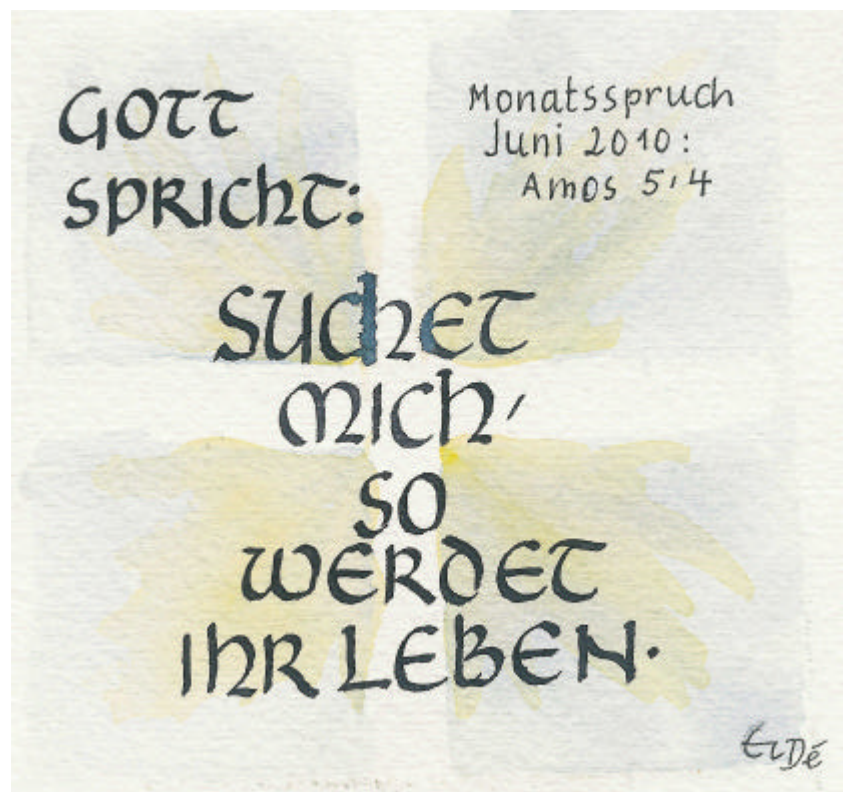 GOTT
SPRICHT:
Monatsspruch
Juni 2010:
Amos 5,4
SUCHET
MICH,
SO
WERDET
IHR LEBEN.
ElDé